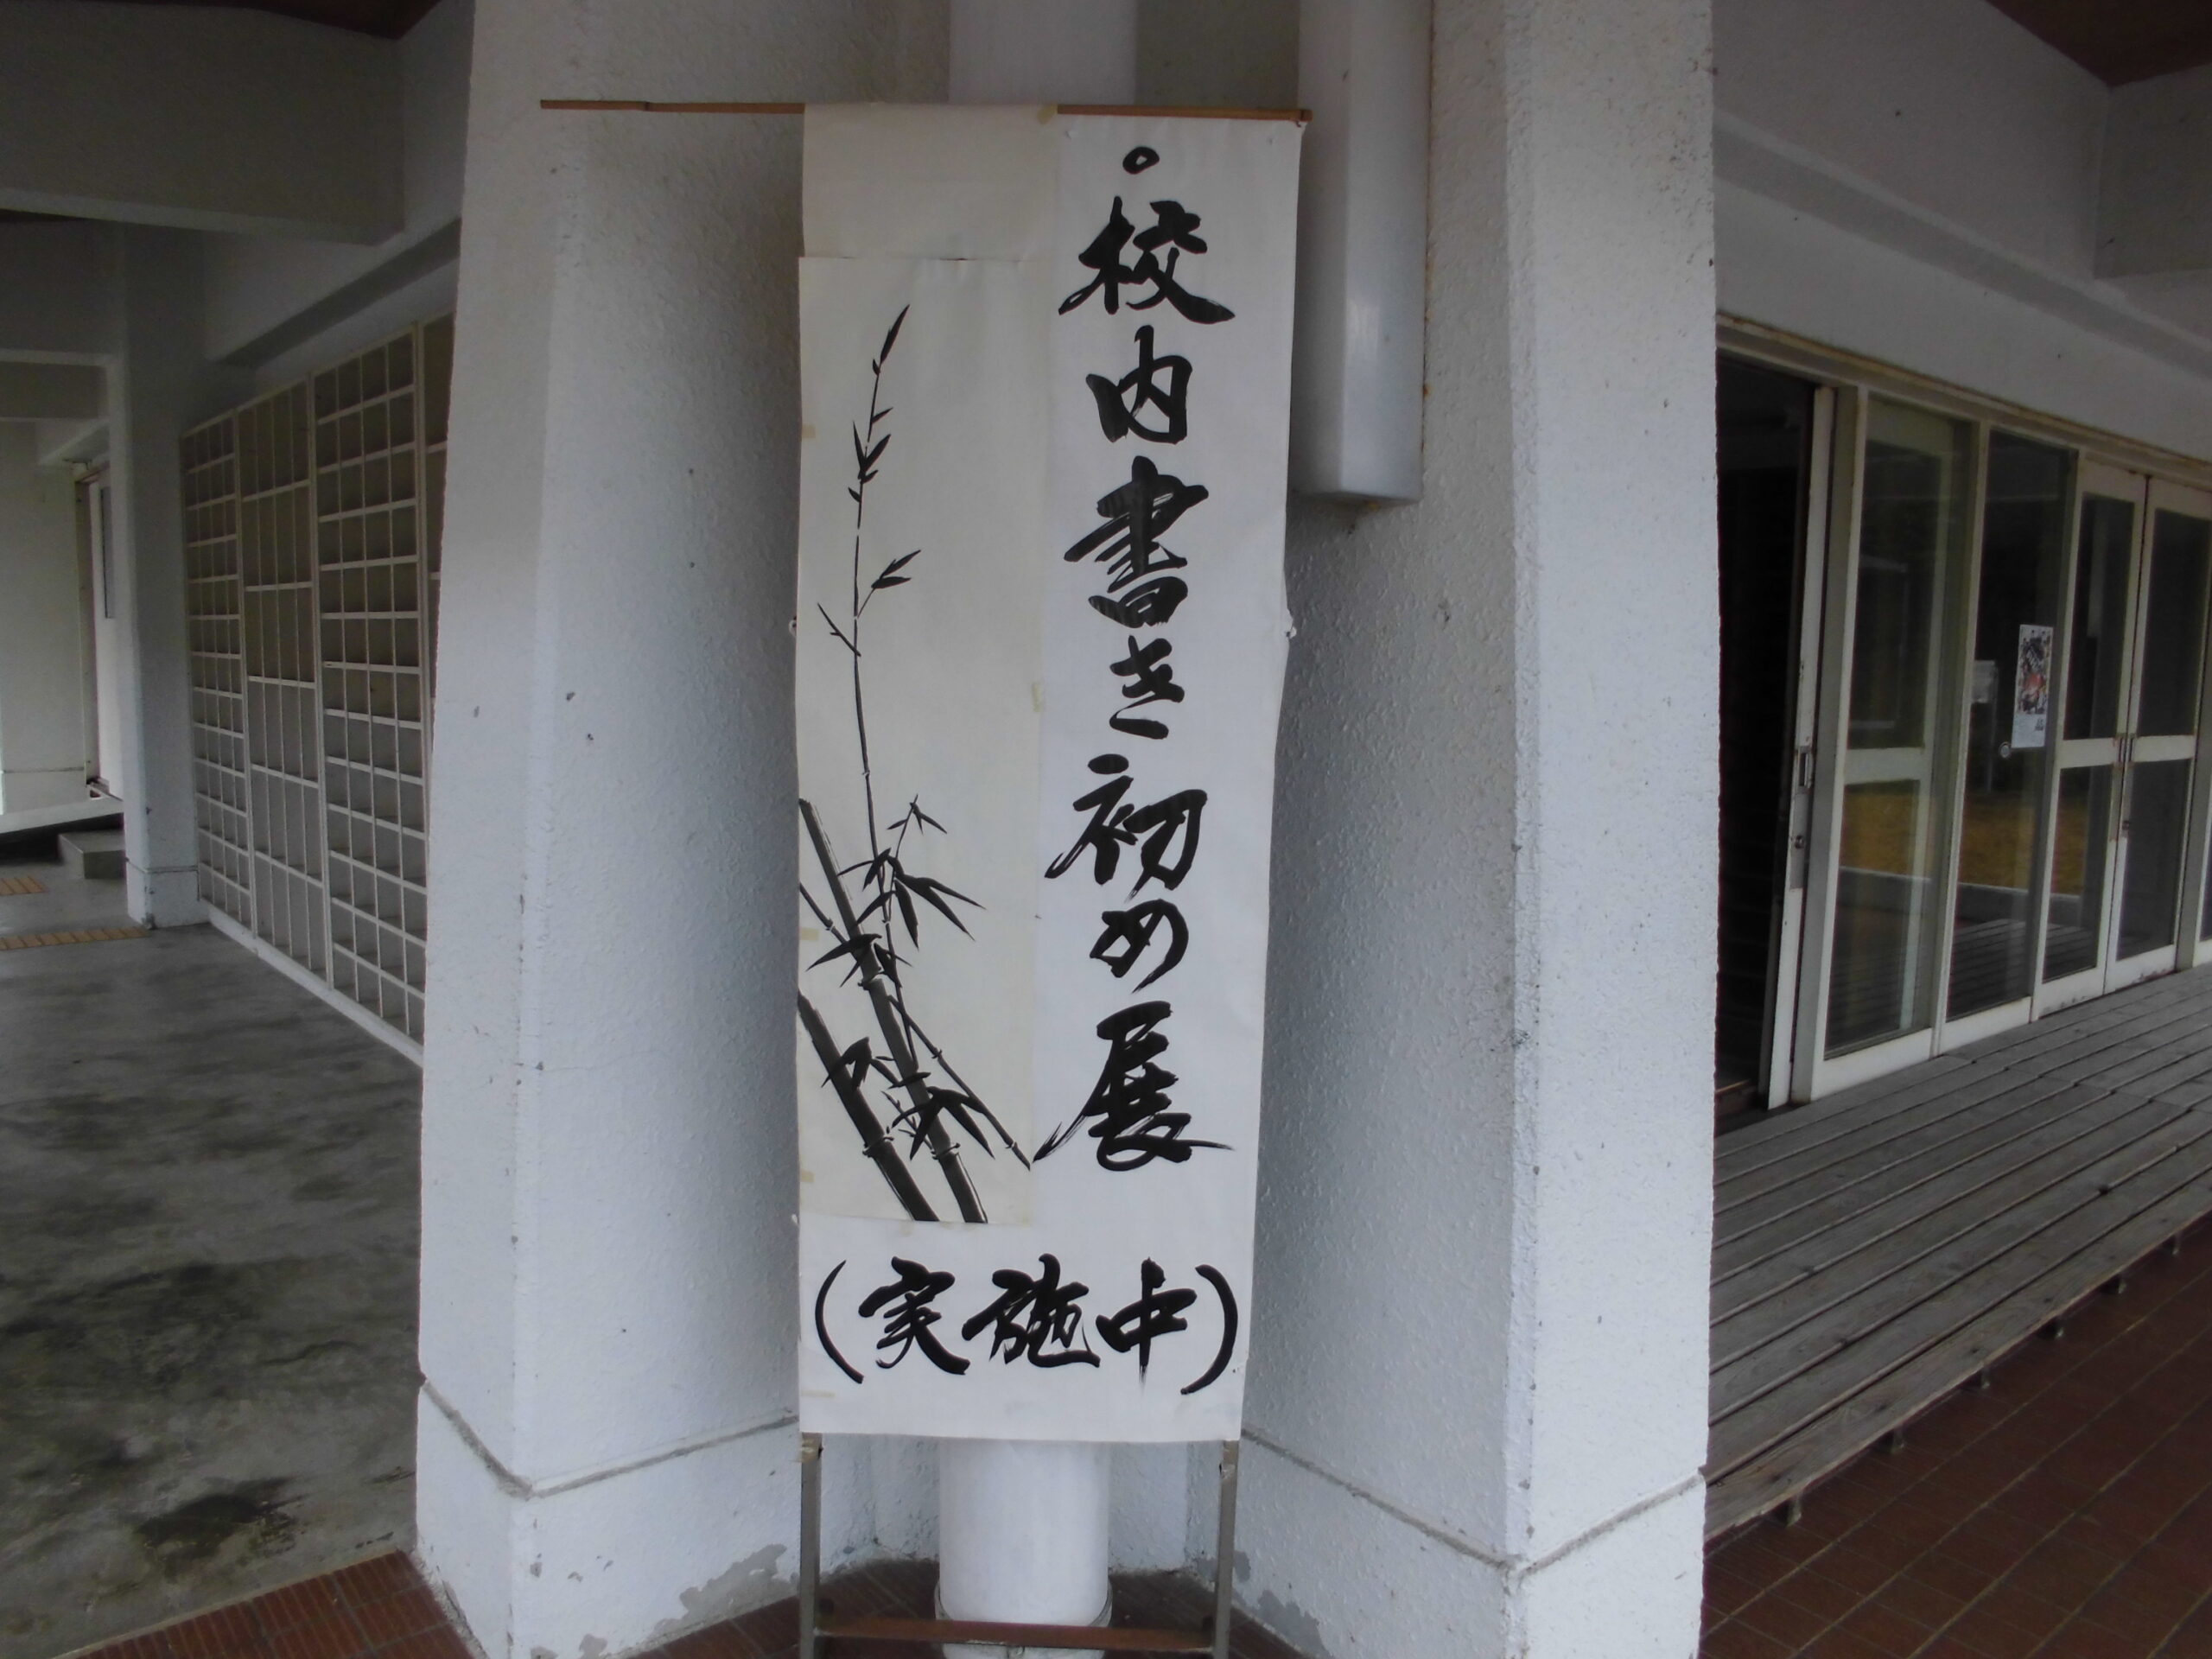 。校内書き初め展
(実施中)